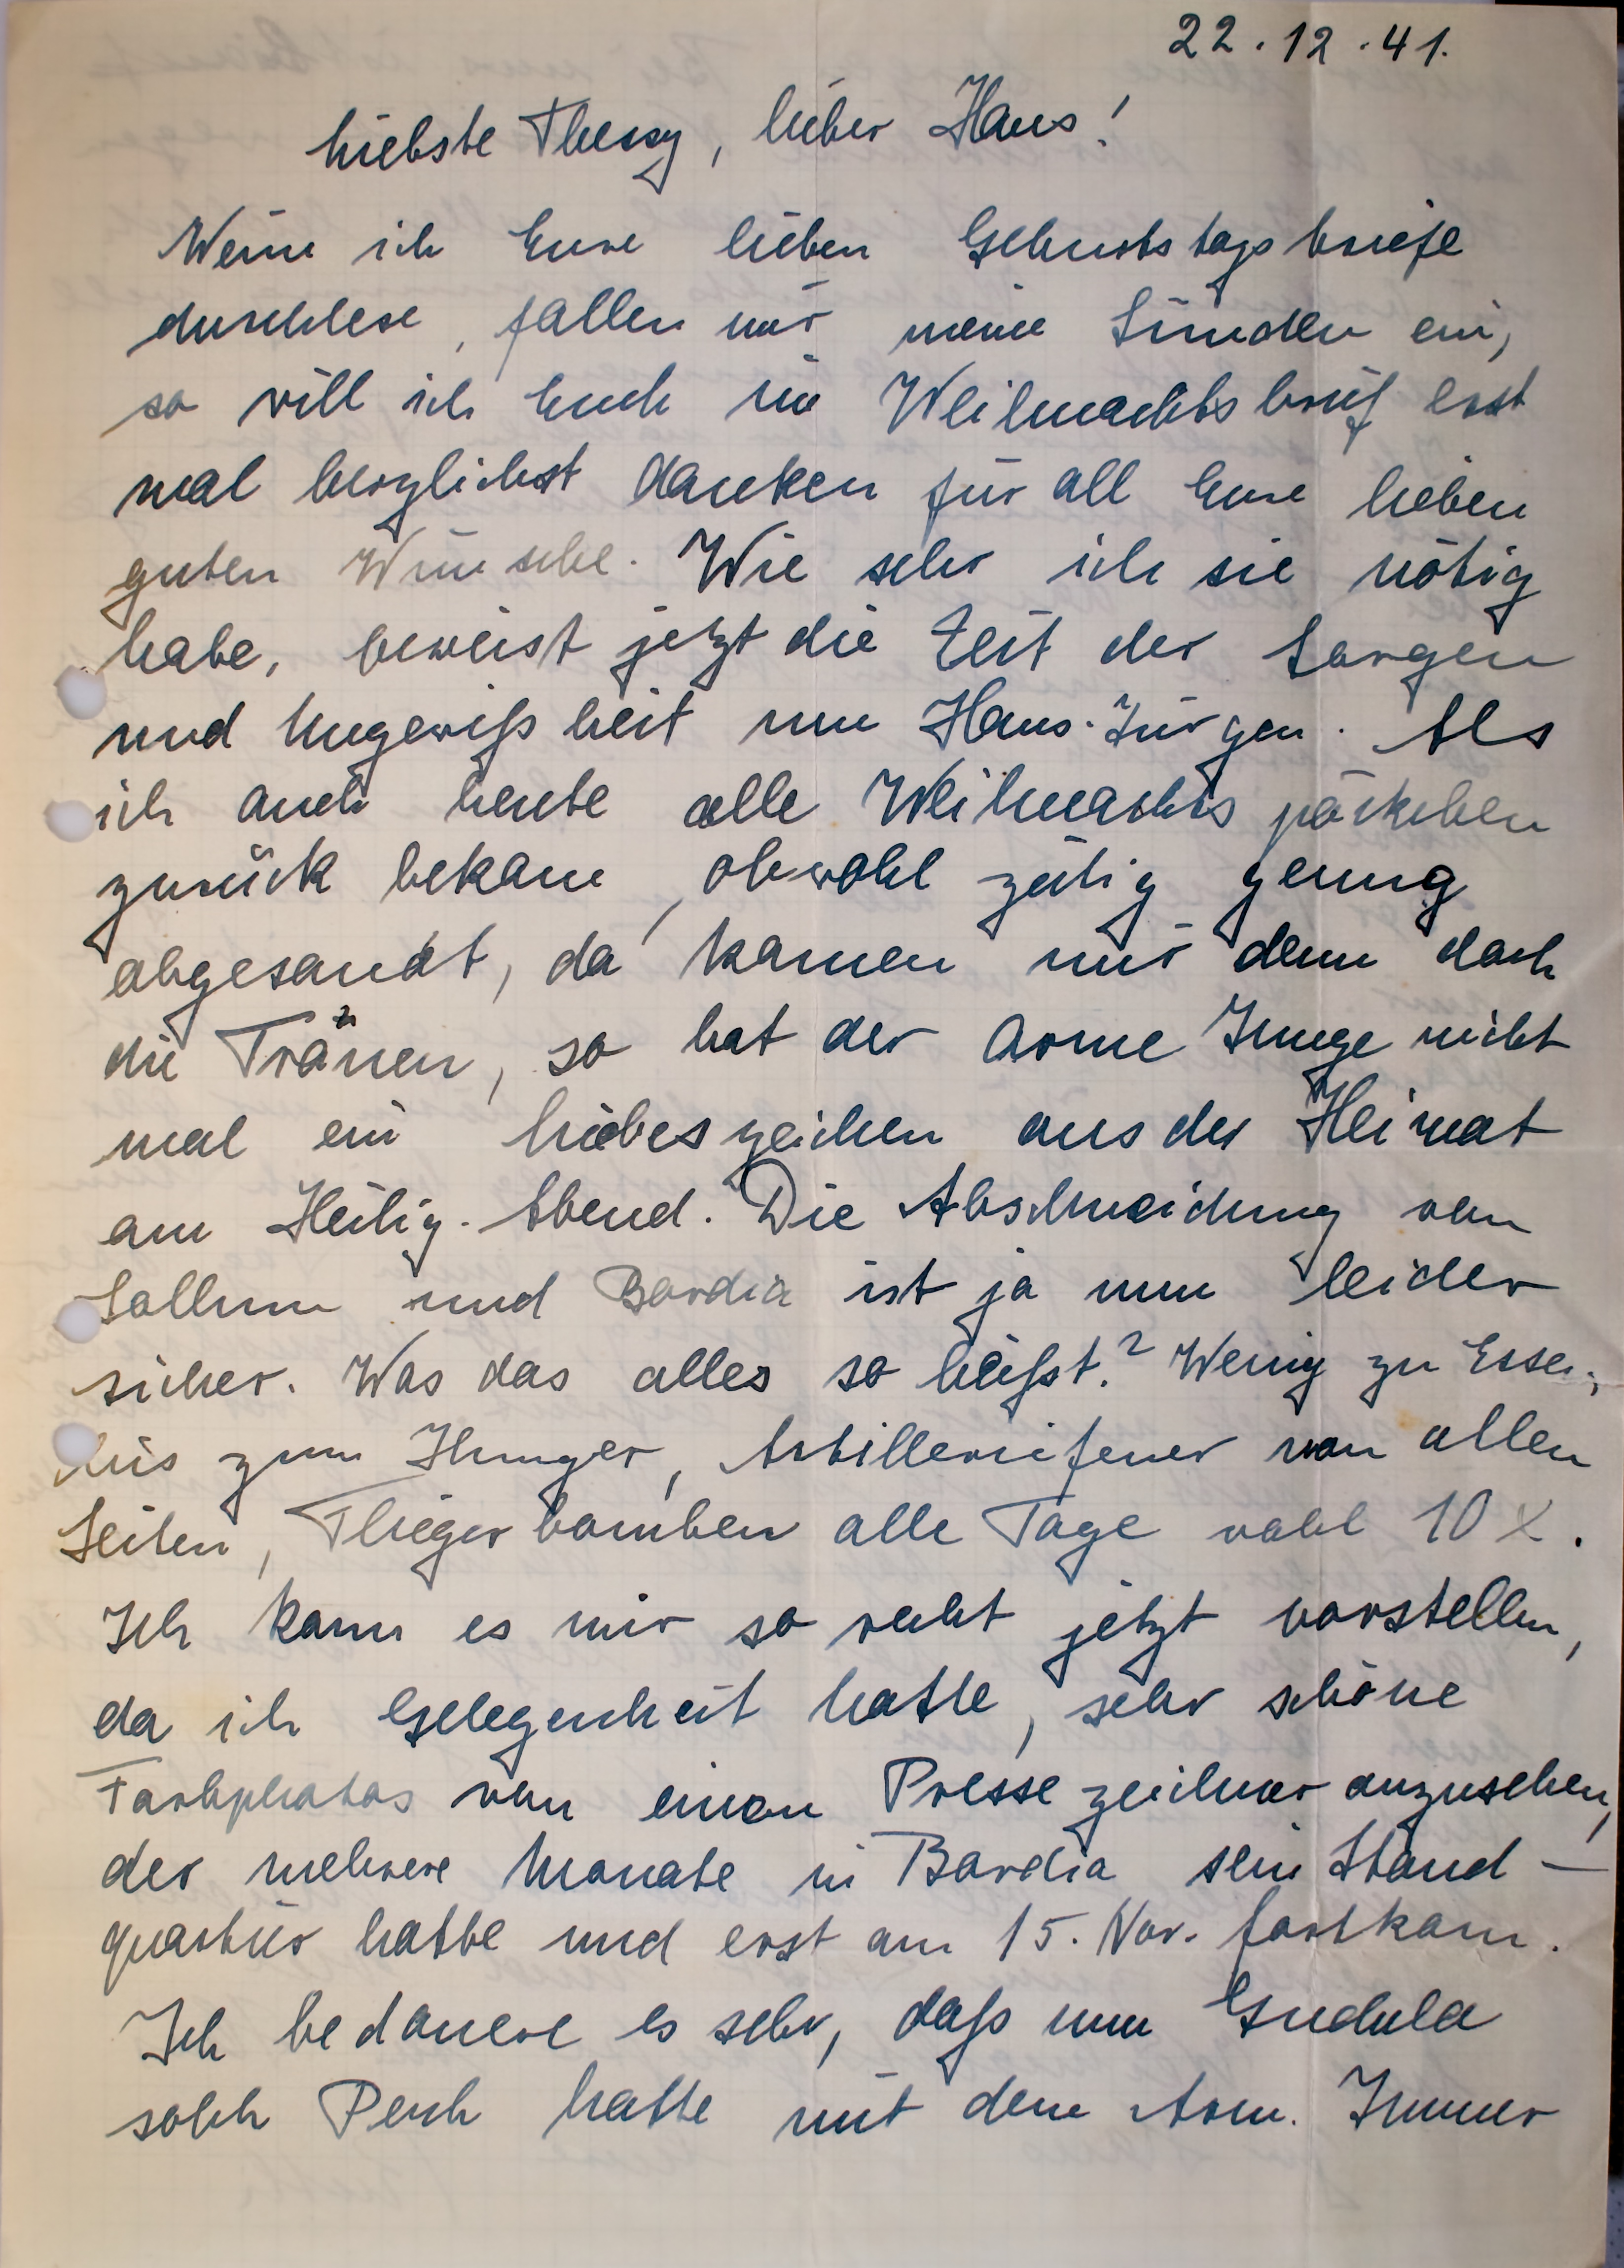 22.12.41.
Liebste Thessy, lieber Hans!
Wenn ich Eure lieben Geburtstagsbriefe
durchlese, fallen mir meine Sünden ein,
so will ich Euch im Weihnachtsbrief erst
mal herzlichst danken für all Eure lieben
guten Wünsche. Wie sehr ich sie nötig
habe, beweist jetzt die Zeit der Sorgen
und Ungewißheit um Hans-Jürgen. Als
ich auch heute alle Weihnachtspäckchen
zurück bekam, obwohl zeitig genug
abgesandt, da kamen mir denn doch
die Tränen, so hat der arme Junge nicht
mal ein Liebeszeichen aus der Heimat
am Heilig. Abend. Die Abschneidung von
Sollum und Bardia ist ja nun leider
sicher. Was das alles so heißt? Wenig zu Essen,
bis zum Hunger, Artilleriefeuer von allen
Seiten, Fliegerbomben alle Tage wohl 10 x.
Ich kann es mir so recht jetzt vorstellen,
da ich Gelegenheit hatte, sehr schöne
Farbphotos von einem Pressezeichner anzusehen,
der mehrere Monate in Bardia sein Stand-
quartier hatte und erst am 15. Nov. fortkam.
Ich bedauere es sehr, daß nun Gudula
solch Pech hatte mit dem Arm. Immer